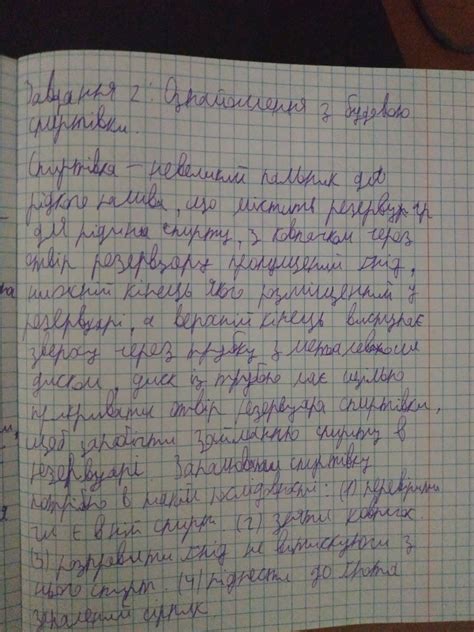 Завдання 2: Ознайомлення з будовою
спиртівки.
Спиртівка – невеликий пальник для
рідкого палива, що містить резервуар
для рідини спирту, з ковпачком через
отвір резервуару пропущений гніт,
нижній кінець якого розміщений у
резервуарі, а верхній кінець виступає
зверху через трубку з металевим
диском, диск із трубкою має щільно
прикривати отвір резервуара спиртівки,
щоб запобігти займанню спирту в
резервуарі. Запалювати спиртівку
потрібно в такій послідовності: (1) перевірити
чи є в ній спирт (2) зняти ковпачок
(3) розправити гніт не витискуючи з
нього спирт. (4) піднести до гнота
запалений сірник.